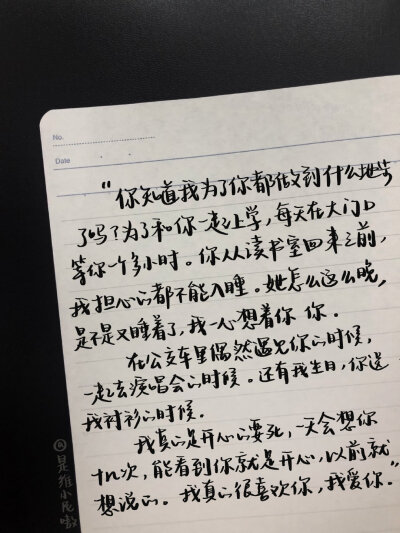 No.
Date
“你知道我为了你都做到什么地步
了吗？为了和你一起上学，每天在大门口
等你一个多小时。你从读书室回来之前，
我担心的都不能入睡。她怎么这么晚，
是不是又睡着了，我一心想着你 你。
在公交车里偶然遇见你的时候，
一起去演唱会的时候。还有我生日，你送
我衬衫的时候。
我真的是开心的要死，一天会想你
十几次，能看到你就是开心，以前就
想说的。我真的很喜欢你，我爱你。”
@是维小尼嗷